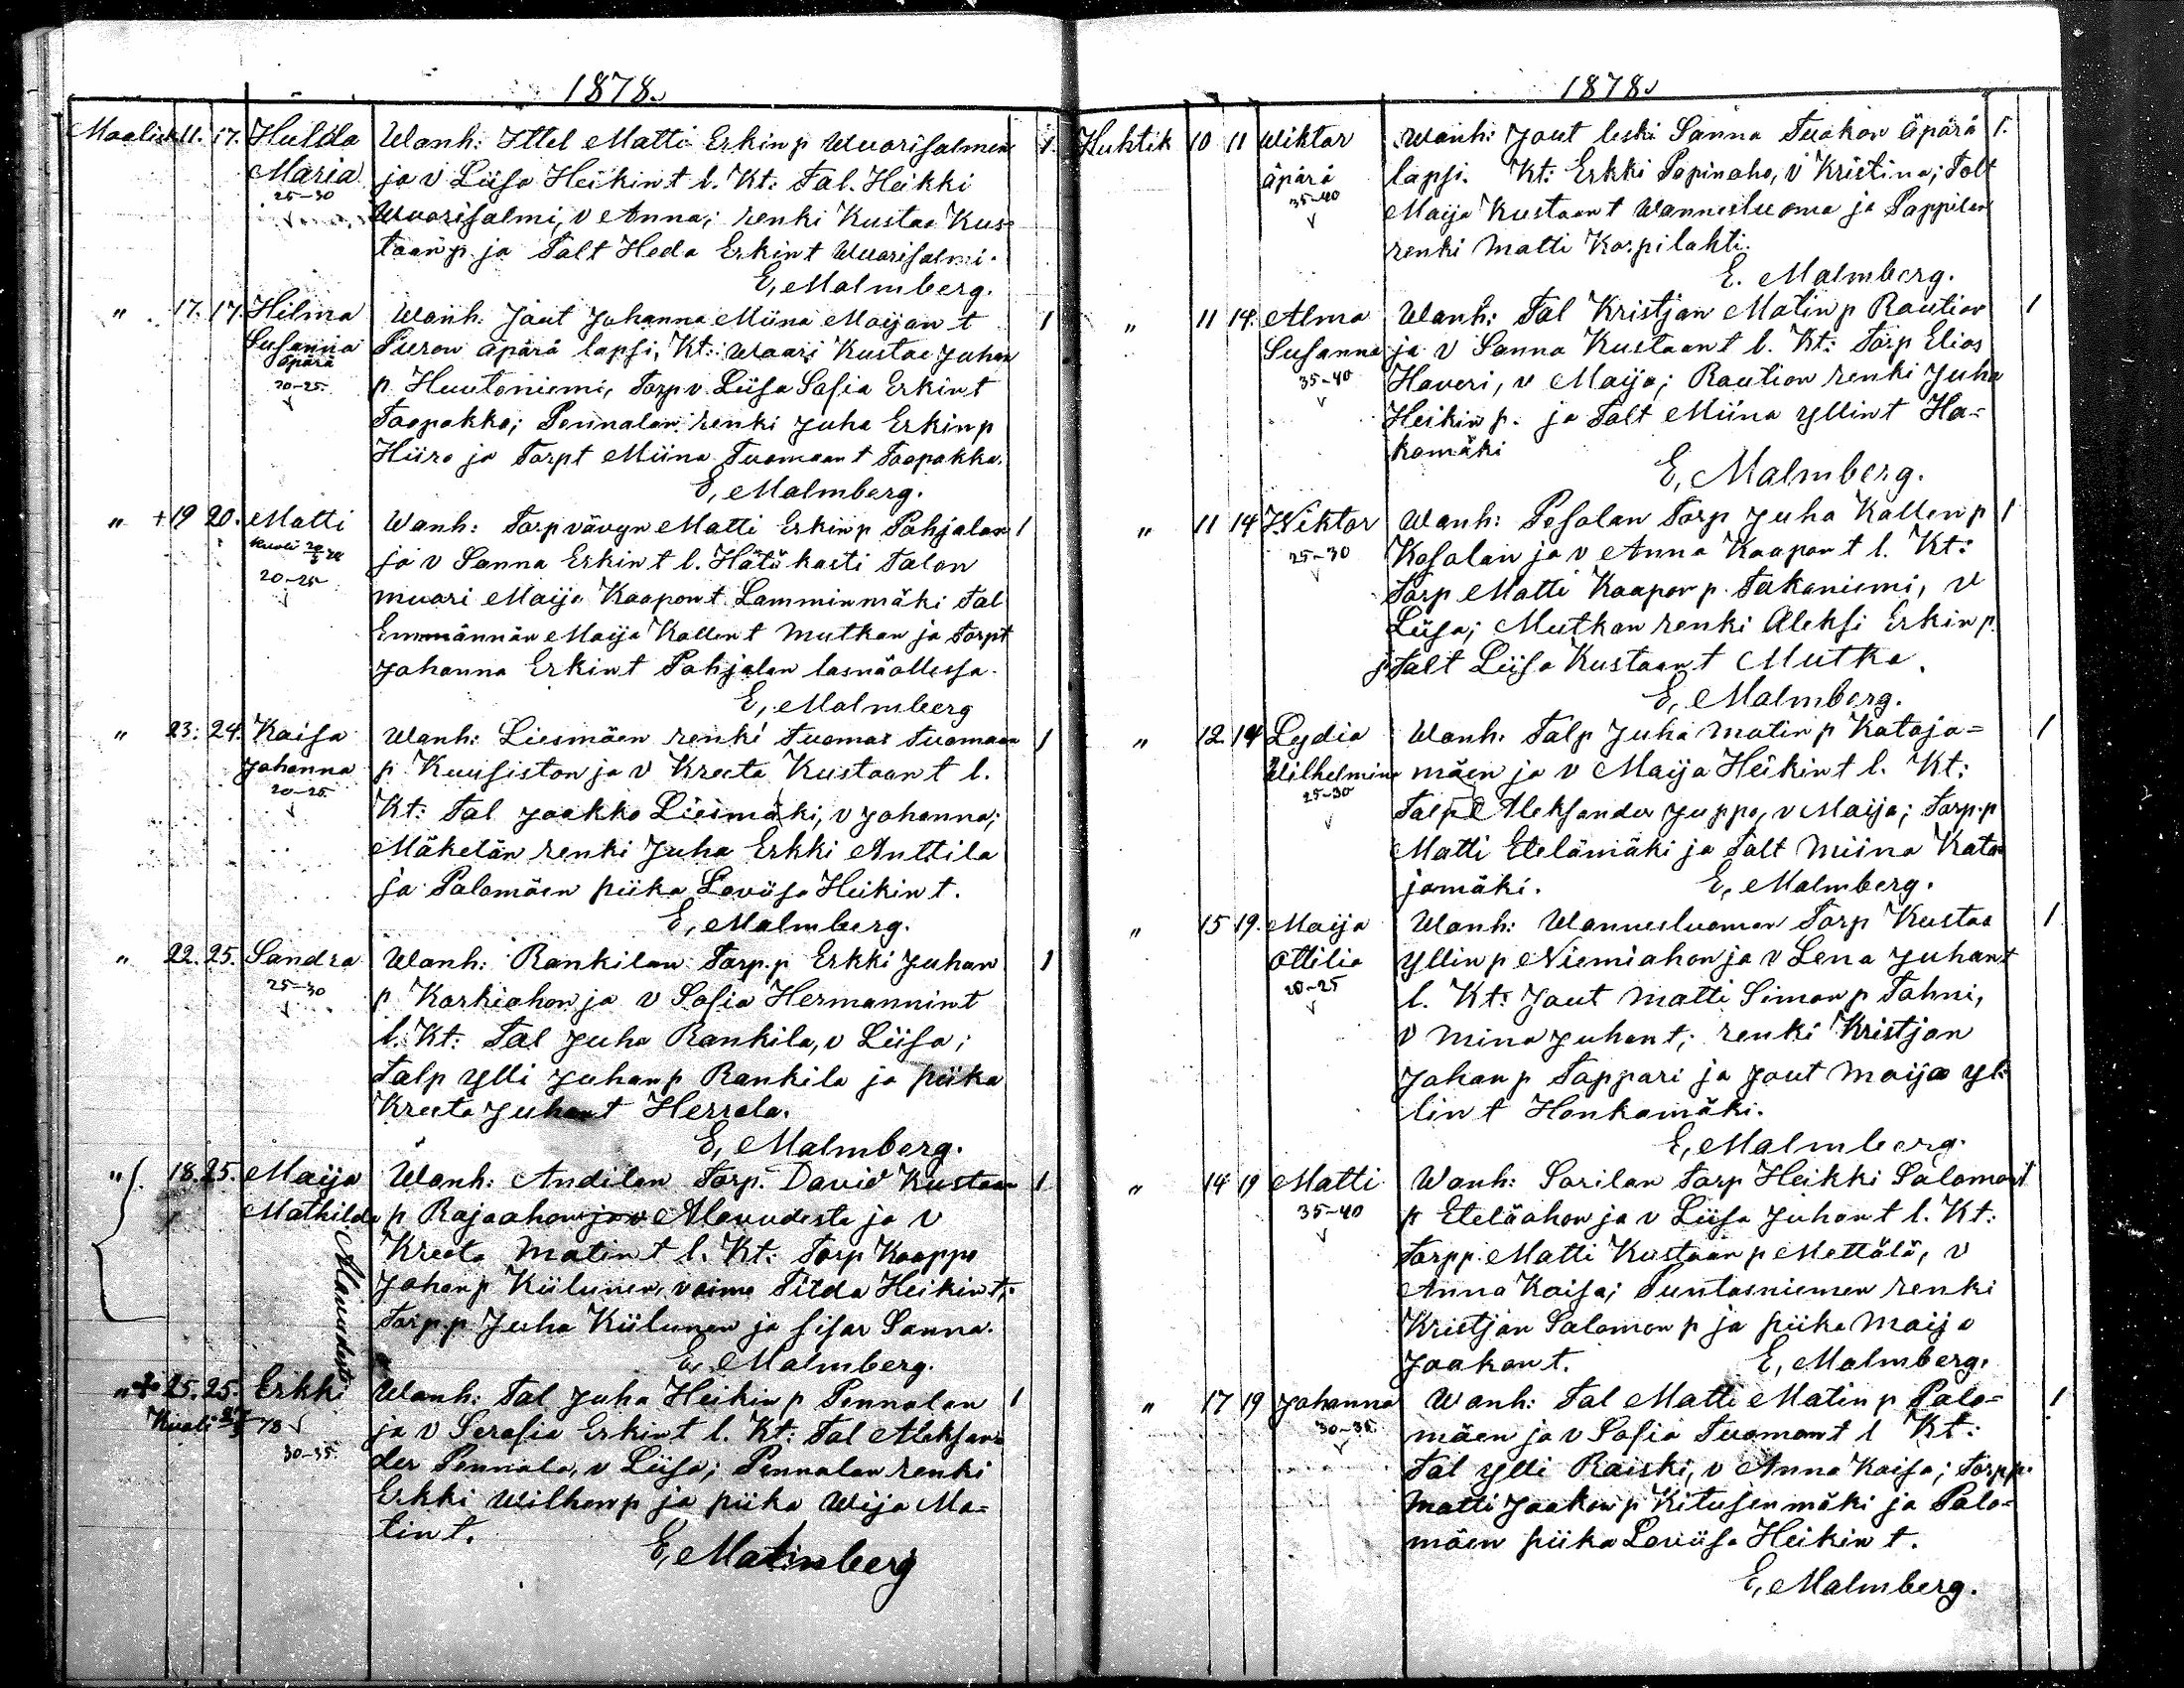 1878.
Maalisk 11. 17. Hulda Wanh: Ittel Matti Erkin p Wuorisalmen 1.
Maria ja v Liisa Heikin t l. Kt: Tal. Heikki
25-30
Wuorisalmi, v Anna; renki Kustaa Kus-
taan p. ja Talt Heda Erkin t Wuorisalmi.
E, Malmberg.
" 17. 17. Hilma Wanh: Jout Johanna Miina Maijan t 1
Susanna Puron äpärä lapsi, Kt: Waari Kustaa Juhan
äpärä
20-25 p. Huutoniemi, Torp v Liisa Sofia Erkin t
Taapakka; Pennalan renki Juha Erkin p
Hiiro ja Torpt Miina Tuomaan t Taapakka.
E, Malmberg.
" + 19 20. Matti Wanh: Torp vävyn Matti Erkin p Pohjalan 1
kuoli ja v Sanna Erkin t l. Hätä kasti Talon
20-25
muori Maija Kaapon t Lamminmäki Tal
Emmännän Maija Kallen t Mutkan ja Torpt
Johanna Erkin t Pohjalan läsnäollessa.
E, Malmberg
" 23. 24. Kaisa Wanh: Liesmäen renki Tuomas Tuomaan 1
Johanna p Kuusiston ja v Kreeta Kustaan t l.
20-25
Kt: Tal Jaakko Liesmäki, v Johanna;
Mäkelän renki Juha Erkki Anttila
ja Palomäen piika Loviisa Heikin t.
E, Malmberg.
" 22. 25. Sandra Wanh: Rankilan Torp. p Erkki Juhan 1
25-30 p Karkiahon ja v Sofia Hermannin t
l. Kt: Tal Juha Rankila, v Liisa;
Talp Ylli Juhan p Rankila ja piika
Kreeta Juhan t Herrala.
E, Malmberg.
" 18. 25. Maija Wanh: Andilan Torp. David Kustaan 1
Mathilda p Rajaahon ja v Alavudesta ja v
Alavudesta
Kreeta Matin t l. Kt: Torp Kaappo
Johan p Kiilunen, vaimo Tilda Heikin t;
Torp. p Juha Kiilunen ja sisar Sanna.
E, Malmberg.
" + 25. 25. Erkki Wanh: Tal Juha Heikin p Pennalan 1
Kuoli 78 ja v Serafia Erkin t l. Kt: Tal Aleksan-
30-35. der Pennala, v Liisa; Pennalan renki
Erkki Wilhon p ja piika Wija Ma-
tin t.
E, Malmberg
1878.
Huhtik 10 11 Wiktor Wanh: Jout leski Sanna Tuokon äpärä 1.
äpärä lapsi. Kt: Erkki Papinaho, v Kristina; Talt
35-40
Maija Kustaan t Wannesluoma ja Pappilan
renki Matti Karpilahti.
E. Malmberg.
" 11 14. Alma Wanh: Tal Kristjan Matin p Raution 1
Susanna ja v Sanna Kustaan t l. Kt: Torp Elias
35-40 Haveri, v Maija; Raution renki Juha
Heikin p. ja Talt Miina Yllin t Ha-
kamäki
E, Malmberg.
" 11 14 Wiktor Wanh: Pesolan Torp Juha Kallen p 1
25-30 Kosolan ja v Anna Kaapon t l. Kt:
Torp Matti Kaapon p. Takaniemi, v
Liisa; Mutkan renki Aleksi Erkin p.
j Talt Liisa Kustaan t Mutka.
E, Malmberg.
" 12. 14 Lydia Wanh: Talp Juha Matin p Kataja- 1
Wilhelmina mäen ja v Maija Heikin t l. Kt:
25-30
Talp Aleksander Juppo, v Maija; Torp. p
Matti Etelämäki ja Talt Miina Kata
jamäki. E, Malmberg.
" 15 19. Maija Wanh: Wannesluoman Torp Kustaa 1
Ottilia Yllin p Niemiahon ja v Lena Juhan t
20-25
l. Kt: Jout Matti Simon p Tahni,
v Mina Juhan t; renki Kristjan
Johan p Tappari ja Jout Maija Yl-
lin t Honkamäki.
E, Malmberg.
" 14 19 Matti Wanh: Sarilan Torp Heikki Salomon
35-40 p Eteläahon ja v Liisa Juhan t l. Kt:
Torp p. Matti Kustaan p Mettälä, v
Anna Kaisa; Puntasniemen renki
Kristjan Salomon p ja piika Maija
Jaakon t. E, Malmberg.
" 17 19 Johanna Wanh: Tal Matti Matin p Palo- 1
30-35 mäen ja v Sofia Tuomaan t l Kt:
Tal Ylli Raiski, v Anna Kaisa; Torp p.
Matti Jaakon p Kitusenmäki ja Palo-
mäen piika Loviisa Heikin t.
E, Malmberg.